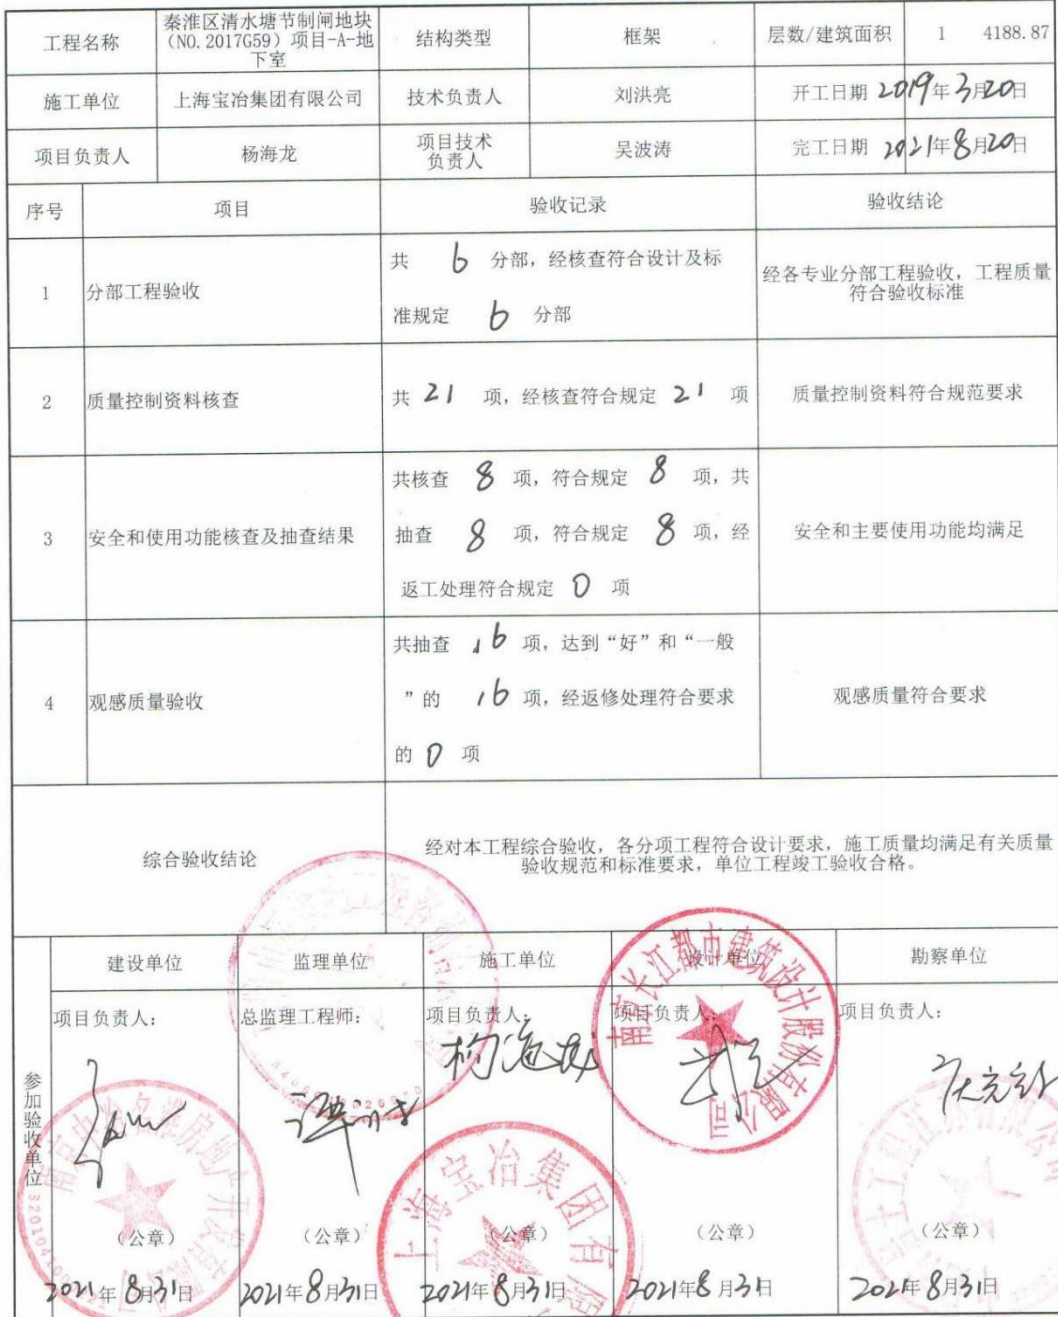 工程名称
秦淮区清水塘节制闸地块
（NO.2017G59）项目-A-地
下室
结构类型
框架
层数/建筑面积
1 4188.87
施工单位
上海宝冶集团有限公司
技术负责人
刘洪亮
开工日期 2019年3月20日
项目负责人
杨海龙
项目技术
负责人
吴波涛
完工日期 2021年8月20日
序号
项目
验收记录
验收结论
1
分部工程验收
共 6 分部，经核查符合设计及标
准规定 6 分部
经各专业分部工程验收，工程质量
符合验收标准
2
质量控制资料核查
共 21 项，经核查符合规定 21 项
质量控制资料符合规范要求
3
安全和使用功能核查及抽查结果
共核查 8 项，符合规定 8 项，共
抽查 8 项，符合规定 8 项，经
返工处理符合规定 0 项
安全和主要使用功能均满足
4
观感质量验收
共抽查 16 项，达到“好”和“一般
”的 16 项，经返修处理符合要求
的 0 项
观感质量符合要求
综合验收结论
经对本工程综合验收，各分项工程符合设计要求，施工质量均满足有关质量
验收规范和标准要求，单位工程竣工验收合格。
参加验收单位
建设单位
监理单位
施工单位
设计单位
勘察单位
项目负责人：
总监理工程师：
项目负责人：
杨海龙
项目负责人：
项目负责人：
南京长江都市建筑设计股份有限公司
上海宝冶集团有限
（公章）
（公章）
（公章）
（公章）
（公章）
2021年8月31日
2021年8月31日
2021年8月31日
2021年8月31日
2021年8月31日